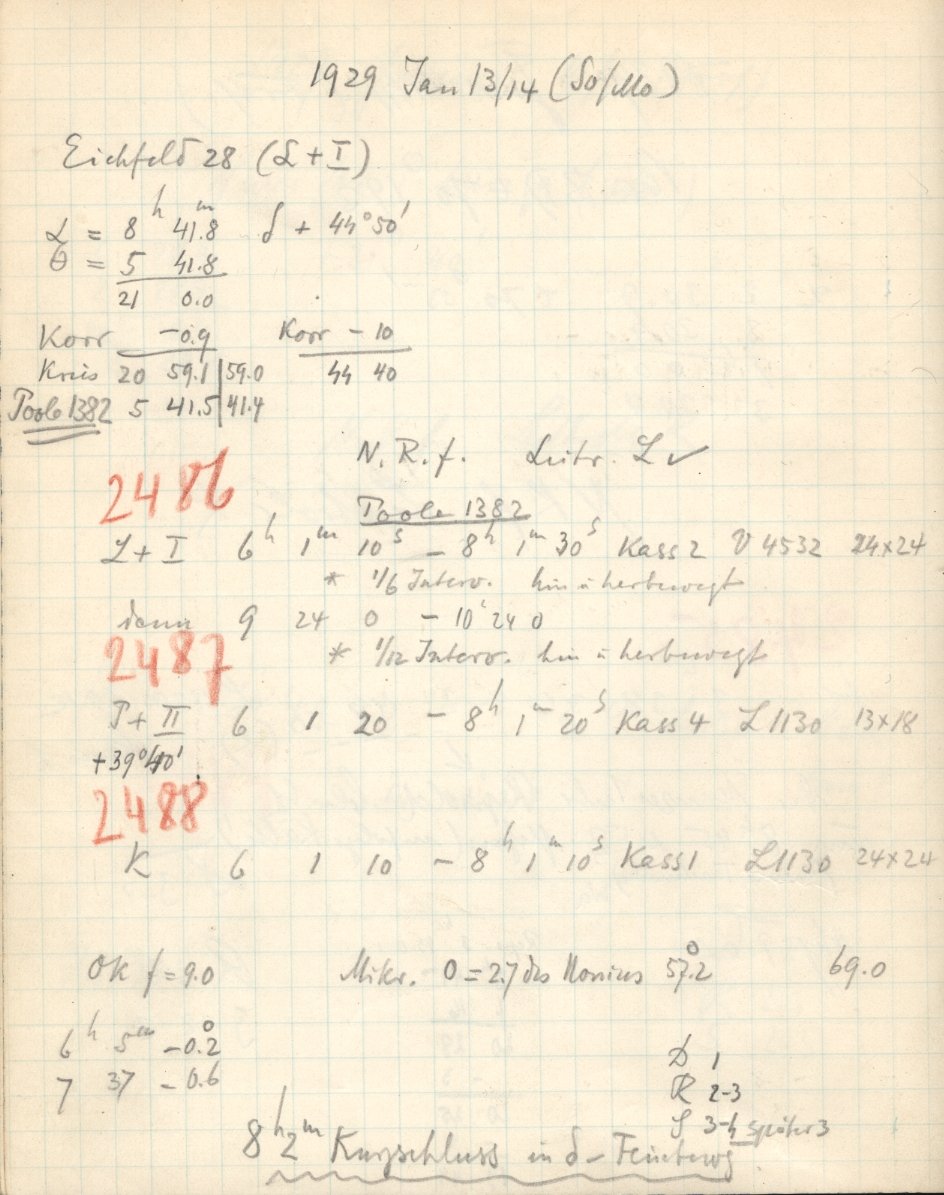 1929 Jan 13/14 (So/Mo)
Eichfeld 28 (L + I)
α = 8ʰ 41.8ᵐ δ + 44°50'
θ = 5 41.8
21 0.0
Korr -0.9 Korr - 10
Kreis 20 59.1 | 59.0 44 40
Poole 1382 5 41.5 | 41.4
N. R. f. Leitr. L ✓
2486
Poole 1382
L + I 6ʰ 1ᵐ 10ˢ - 8ʰ 1ᵐ 30ˢ Kass 2 V 4532 24×24
* 1/6 Interv. hin u herbewegt
dann 9 24 0 - 10 24 0
2487
* 1/12 Interv. hin u herbewegt
P + II 6 1 20 - 8ʰ 1ᵐ 20ˢ Kass 4 L 1130 13×18
+39°40'
2488
K 6 1 10 - 8ʰ 1ᵐ 10ˢ Kass 1 L 1130 24×24
OK f = 9.0 Mikr. 0 = 2.7 des Nonius 57°.2 69.0
6ʰ 5ᵐ -0°.2
7 37 -0.6
D 1
R 2-3
S 3-4 später 3
8ʰ2ᵐ Kurzschluss in δ-Feinbewg